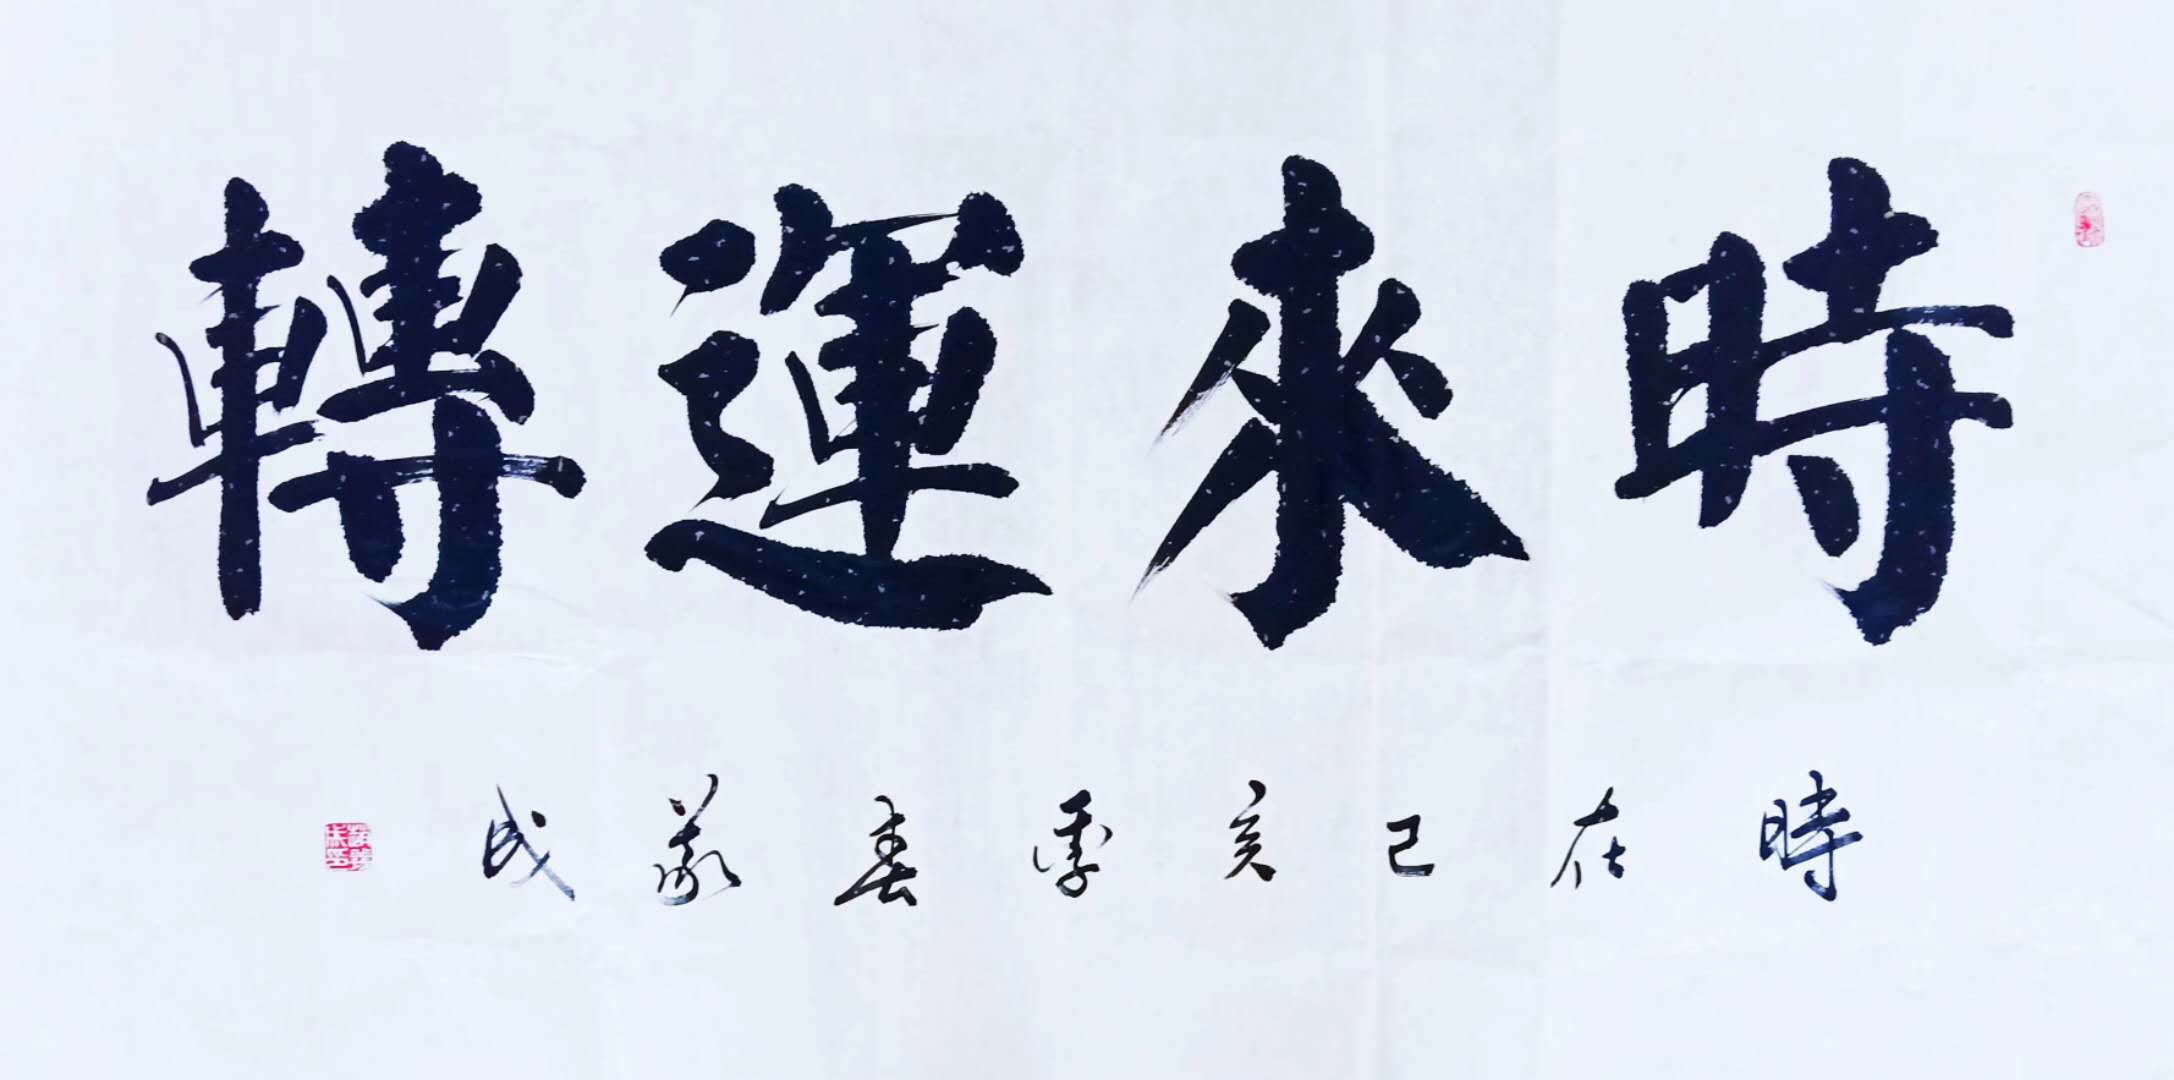 時來運轉
時在己亥季春義成